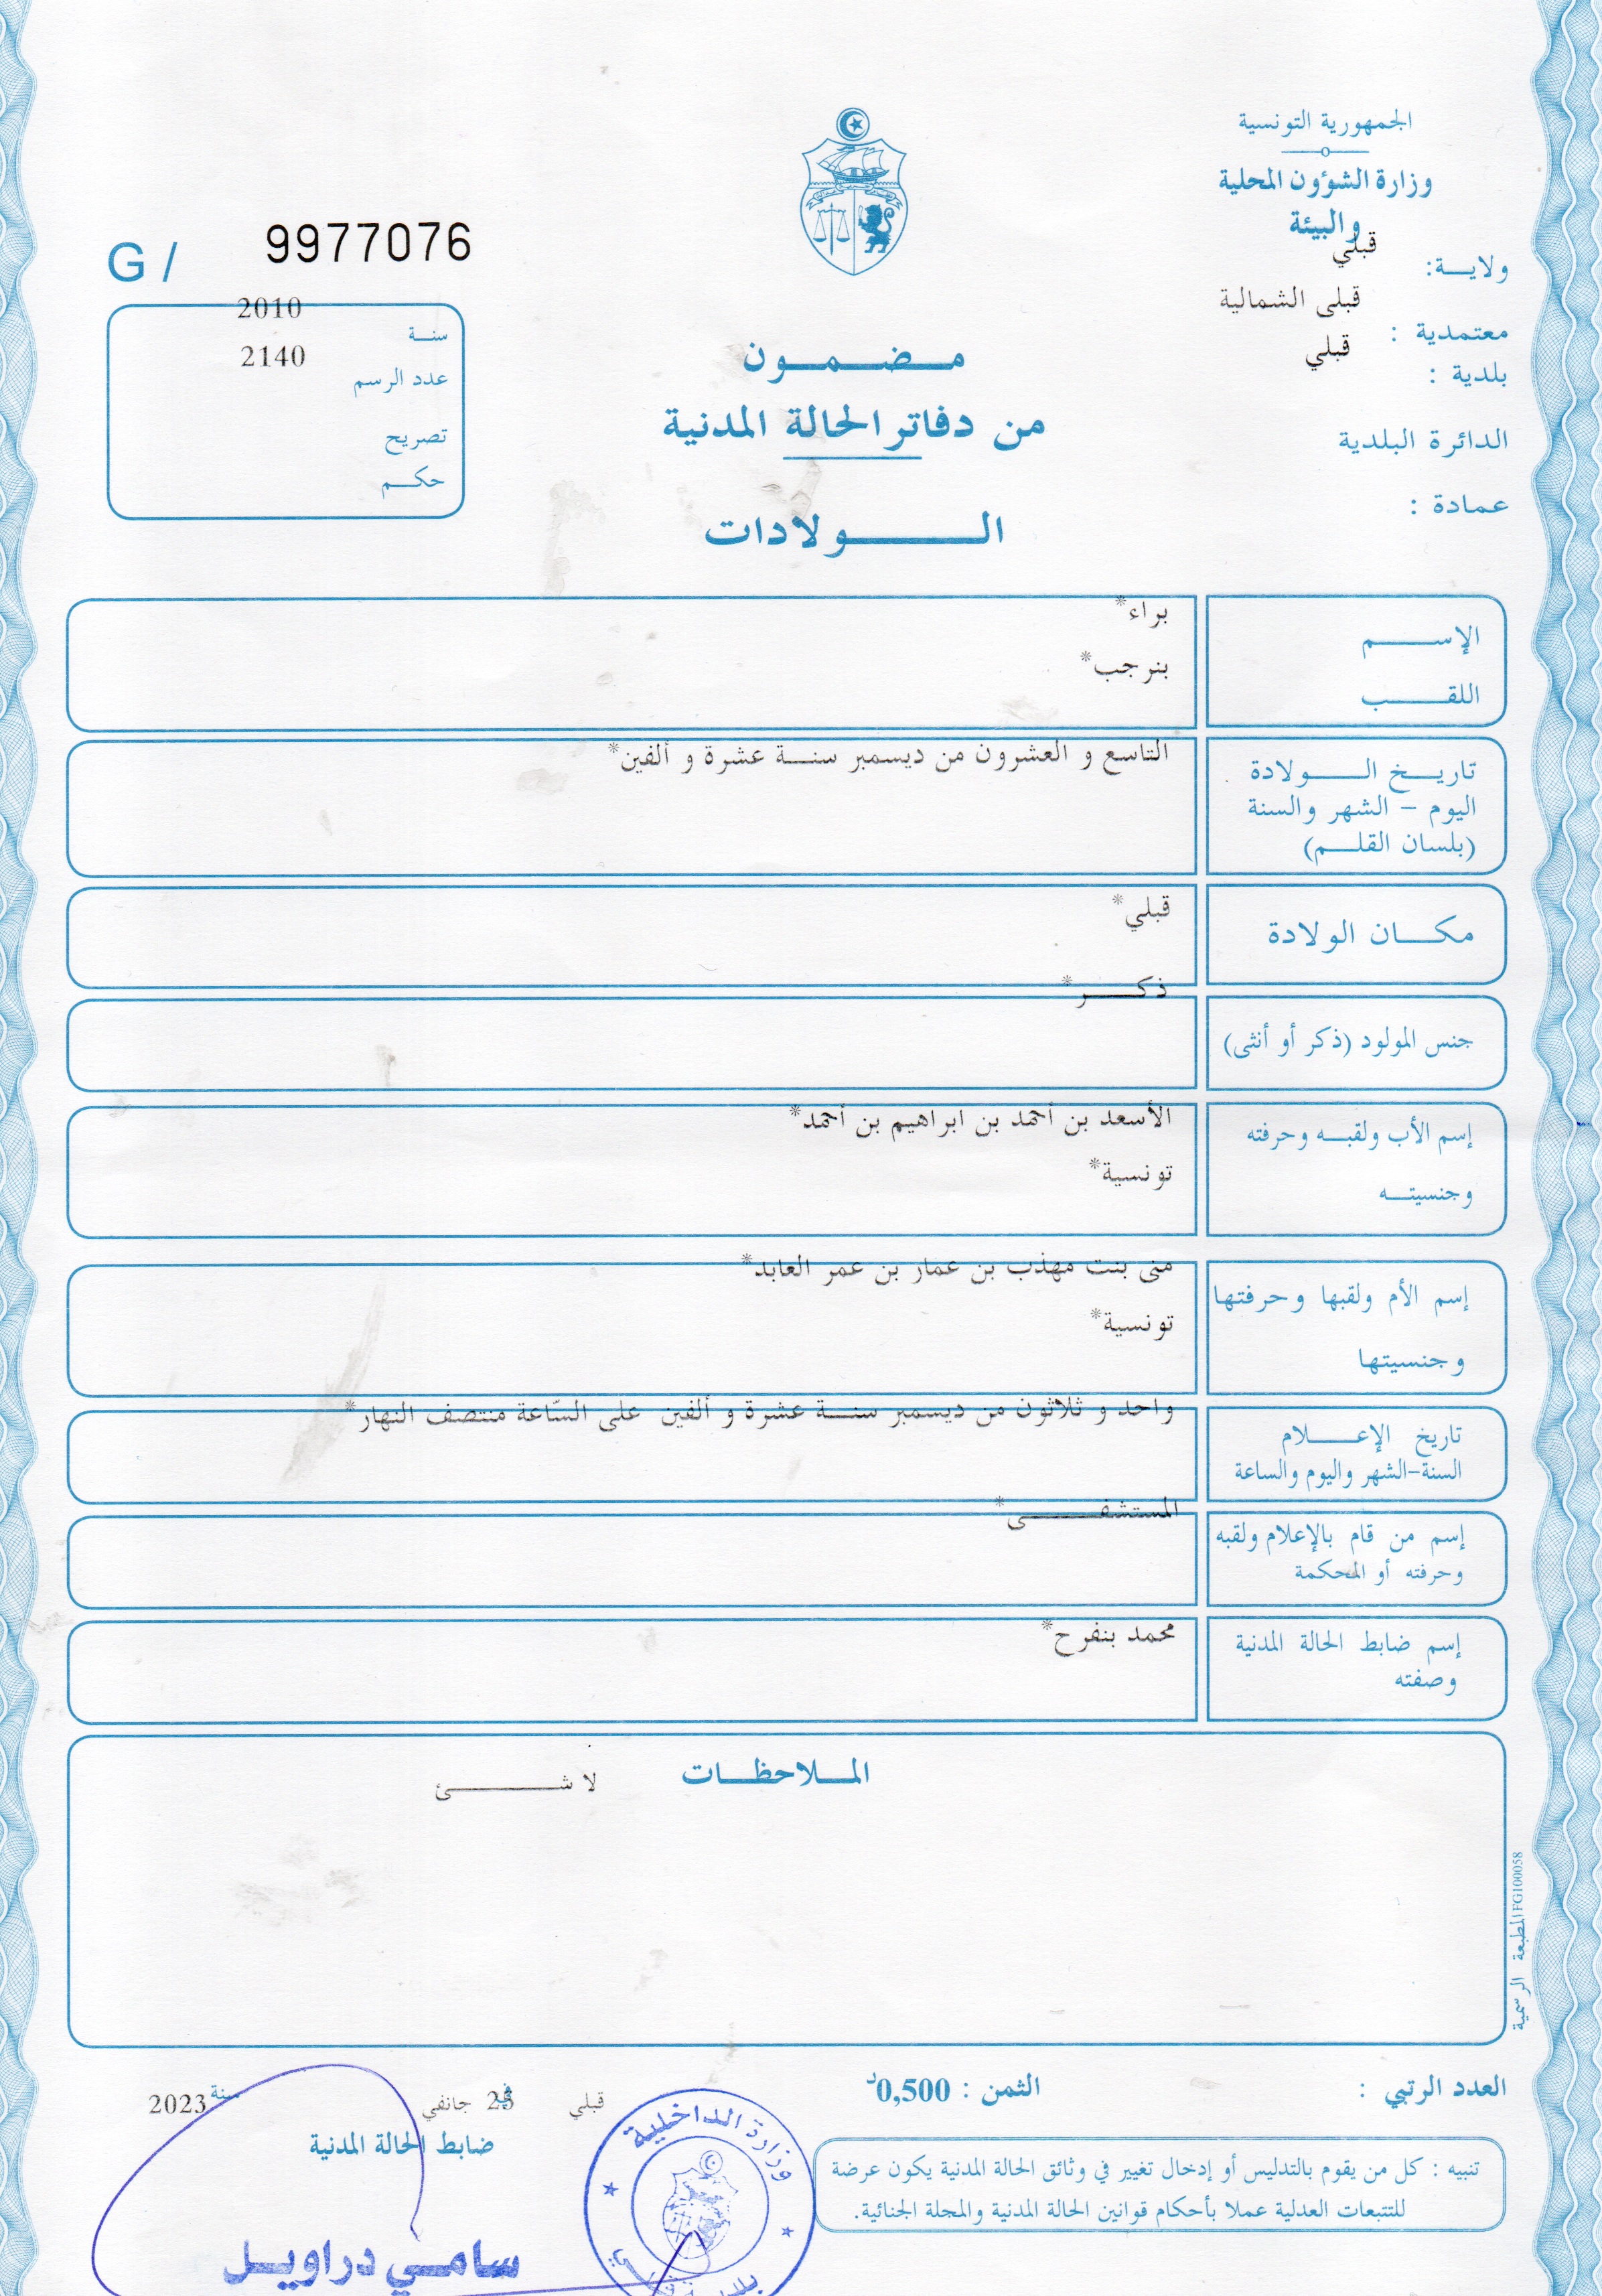 الجمهورية التونسية
وزارة الشؤون المحلية
والبيئة
ولايـــة: قبلي
معتمدية : قبلى الشمالية
بلدية : قبلي
الدائرة البلدية
عمادة :
G / 9977076
سنـــة 2010
عدد الرسم 2140
تصريح
حكـــم
مـــضـــمـــون
من دفاتر الحالة المدنية
الـــــولادات
الإســـــم براء*
اللقـــــب بنرجب*
تاريـــخ الـــــولادة
اليوم – الشهر والسنة
(بلسان القلـــم)
التاسع و العشرون من ديسمبر سنـــة عشرة و ألفين*
مكـــان الولادة قبلي*
جنس المولود (ذكر أو أنثى) ذكـــر*
إسم الأب ولقبـــه وحرفته
وجنسيتـــه
الأسعد بن أحمد بن ابراهيم بن أحمد*
تونسية*
إسم الأم ولقبها وحرفتها
وجنسيتها
منى بنت مهذب بن عمار بن عمر العابد*
تونسية*
تاريخ الإعـــــلام
السنة-الشهر واليوم والساعة
واحد و ثلاثون من ديسمبر سنـــة عشرة و ألفين على السّاعة منتصف النهار*
إسم من قام بالإعلام ولقبه
وحرفته أو المحكمة
المستشفـــــى*
إسم ضابط الحالة المدنية
وصفته
محمد بنفرح*
المـــلاحظـــات
لا شـــــئ
المطبعة الرسمية FG100058
العدد الرتبي :
الثمن : 0,500د
قبلي في جانفي سنة 2023
ضابط الحالة المدنية
تنبيه : كل من يقوم بالتدليس أو إدخال تغيير في وثائق الحالة المدنية يكون عرضة
للتتبعات العدلية عملا بأحكام قوانين الحالة المدنية والمجلة الجنائية.
وزارة الداخلية
سامـــي دراويـــل